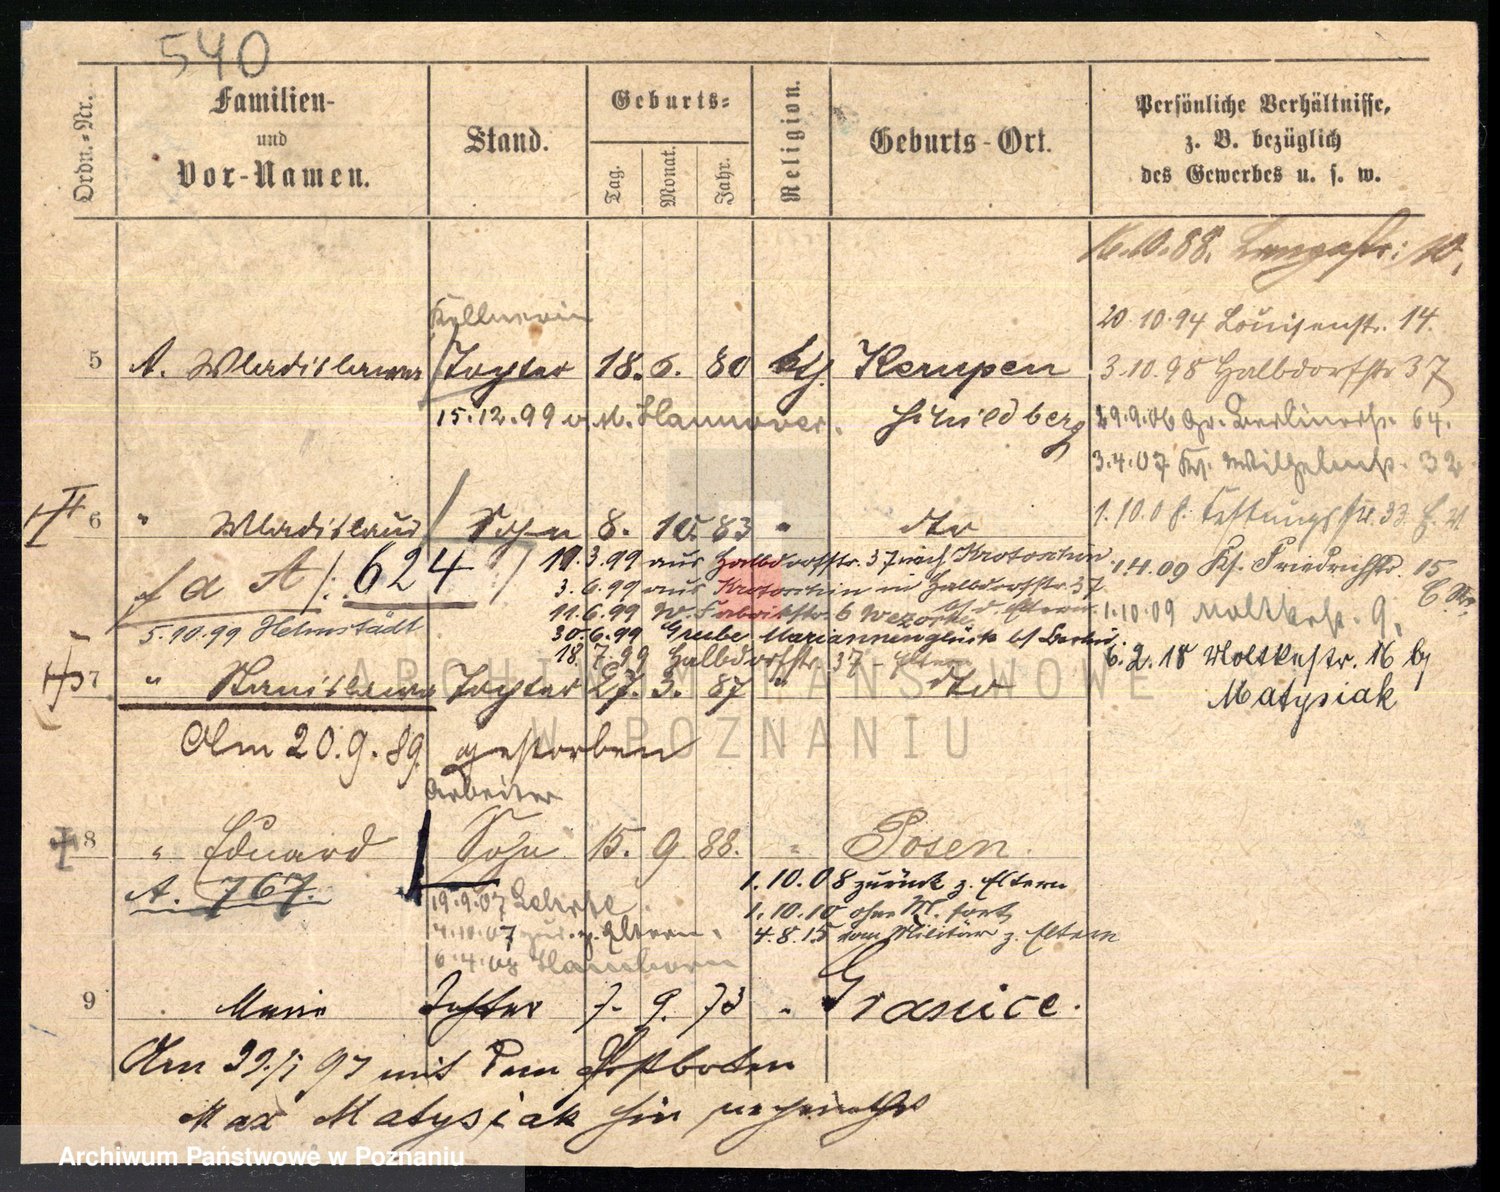 540
Ordn.-Nr.
Familien-
und
Vor-Namen.
Stand.
Geburts-
Tag.
Monat.
Jahr.
Religion.
Geburts-Ort.
Persönliche Verhältnisse,
z. B. bezüglich
des Gewerbes u. s. w.
16.10.88. Langestr: 10,
Kellnerin
20.10.94 Louisenstr. 14.
5 A. Wladislawa Tochter 18. 6. 80 kth. Kempen
3.10.95 Halbdorfstr 37
15.12.99 v. M. Hannover. Schildberg
29.9.06 Gr. Berlinerstr. 64.
3.4.07 Kl. Wilhelmstr. 32
6 " Wladislaus Sohn 8. 10. 83 " dto
1.10.08 Festungsstr. 33
f d A /: 624
11.3.99 aus Halbdorfstr. 37 nach Krotoschin
3.6.99 aus Krotoschin in Halbdorfstr. 37
11.6.99 W. Fabrikstr 6 Wezorke
30.6.99 Grube Mariannenglück b/ Berlin
18.7.99 Halbdorfstr. 37 - Eltern
5.10.99 Helmstädt
1.4.09 Ks. Friedrichstr. 15
1.10.09 Moltkestr. 9,
6.2.18 Moltkestr. 16 by
Matysiak
7 " Stanislawa Tochter 27. 3. 87 " dto
Am 20.9.89. gestorben
Arbeiter
8 " Eduard Sohn 15. 9 88. " Posen.
A. 767.
1.10.08 zurück z. Eltern
1.10.10 ohne M. fort
4.8.15 vom Militär z. Eltern
19.9.07
4.10.07 zur. z. Eltern.
6.4.08 Hamborn
9 Marie Tochter 7. 9. 73 " Granice.
Am 29/1 97 mit dem Postboten
Max Matysiak hier verheirathet
ARCHIWUM PAŃSTWOWE
W POZNANIU
Archiwum Państwowe w Poznaniu